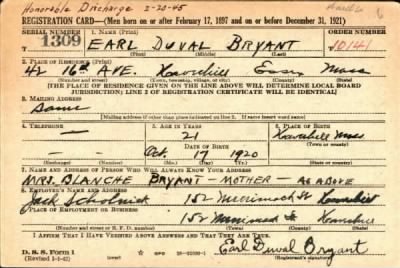 Honorable Discharge 2-20-45
REGISTRATION CARD—(Men born on or after February 17, 1897 and on or before December 31, 1921)
SERIAL NUMBER 1. NAME (Print) ORDER NUMBER
1309 EARL DUVAL BRYANT 10141
(First) (Middle) (Last)
2. PLACE OF RESIDENCE (Print)
42 16th AVE. Haverhill Essex Mass
(Number and street) (Town, township, village, or city) (County) (State)
[THE PLACE OF RESIDENCE GIVEN ON THE LINE ABOVE WILL DETERMINE LOCAL BOARD
JURISDICTION; LINE 2 OF REGISTRATION CERTIFICATE WILL BE IDENTICAL]
3. MAILING ADDRESS
Same
[Mailing address if other than place indicated on line 2. If same insert word same]
4. TELEPHONE 5. AGE IN YEARS 6. PLACE OF BIRTH
— 21 Haverhill Mass
DATE OF BIRTH (Town or county)
— Oct. 17 1920
(Exchange) (Number) (Mo.) (Day) (Yr.) (State or country)
7. NAME AND ADDRESS OF PERSON WHO WILL ALWAYS KNOW YOUR ADDRESS
MRS. BLANCHE BRYANT — MOTHER — AS ABOVE
8. EMPLOYER'S NAME AND ADDRESS
Jack 152 Merrimack St Haverhill
9. PLACE OF EMPLOYMENT OR BUSINESS
152 Merrimack St Haverhill
(Number and street or R. F. D. number) (Town) (County) (State)
I AFFIRM THAT I HAVE VERIFIED ABOVE ANSWERS AND THAT THEY ARE TRUE.
D. S. S. Form 1
(Revised 1-1-42) GPO Earl Duval Bryant
(over)